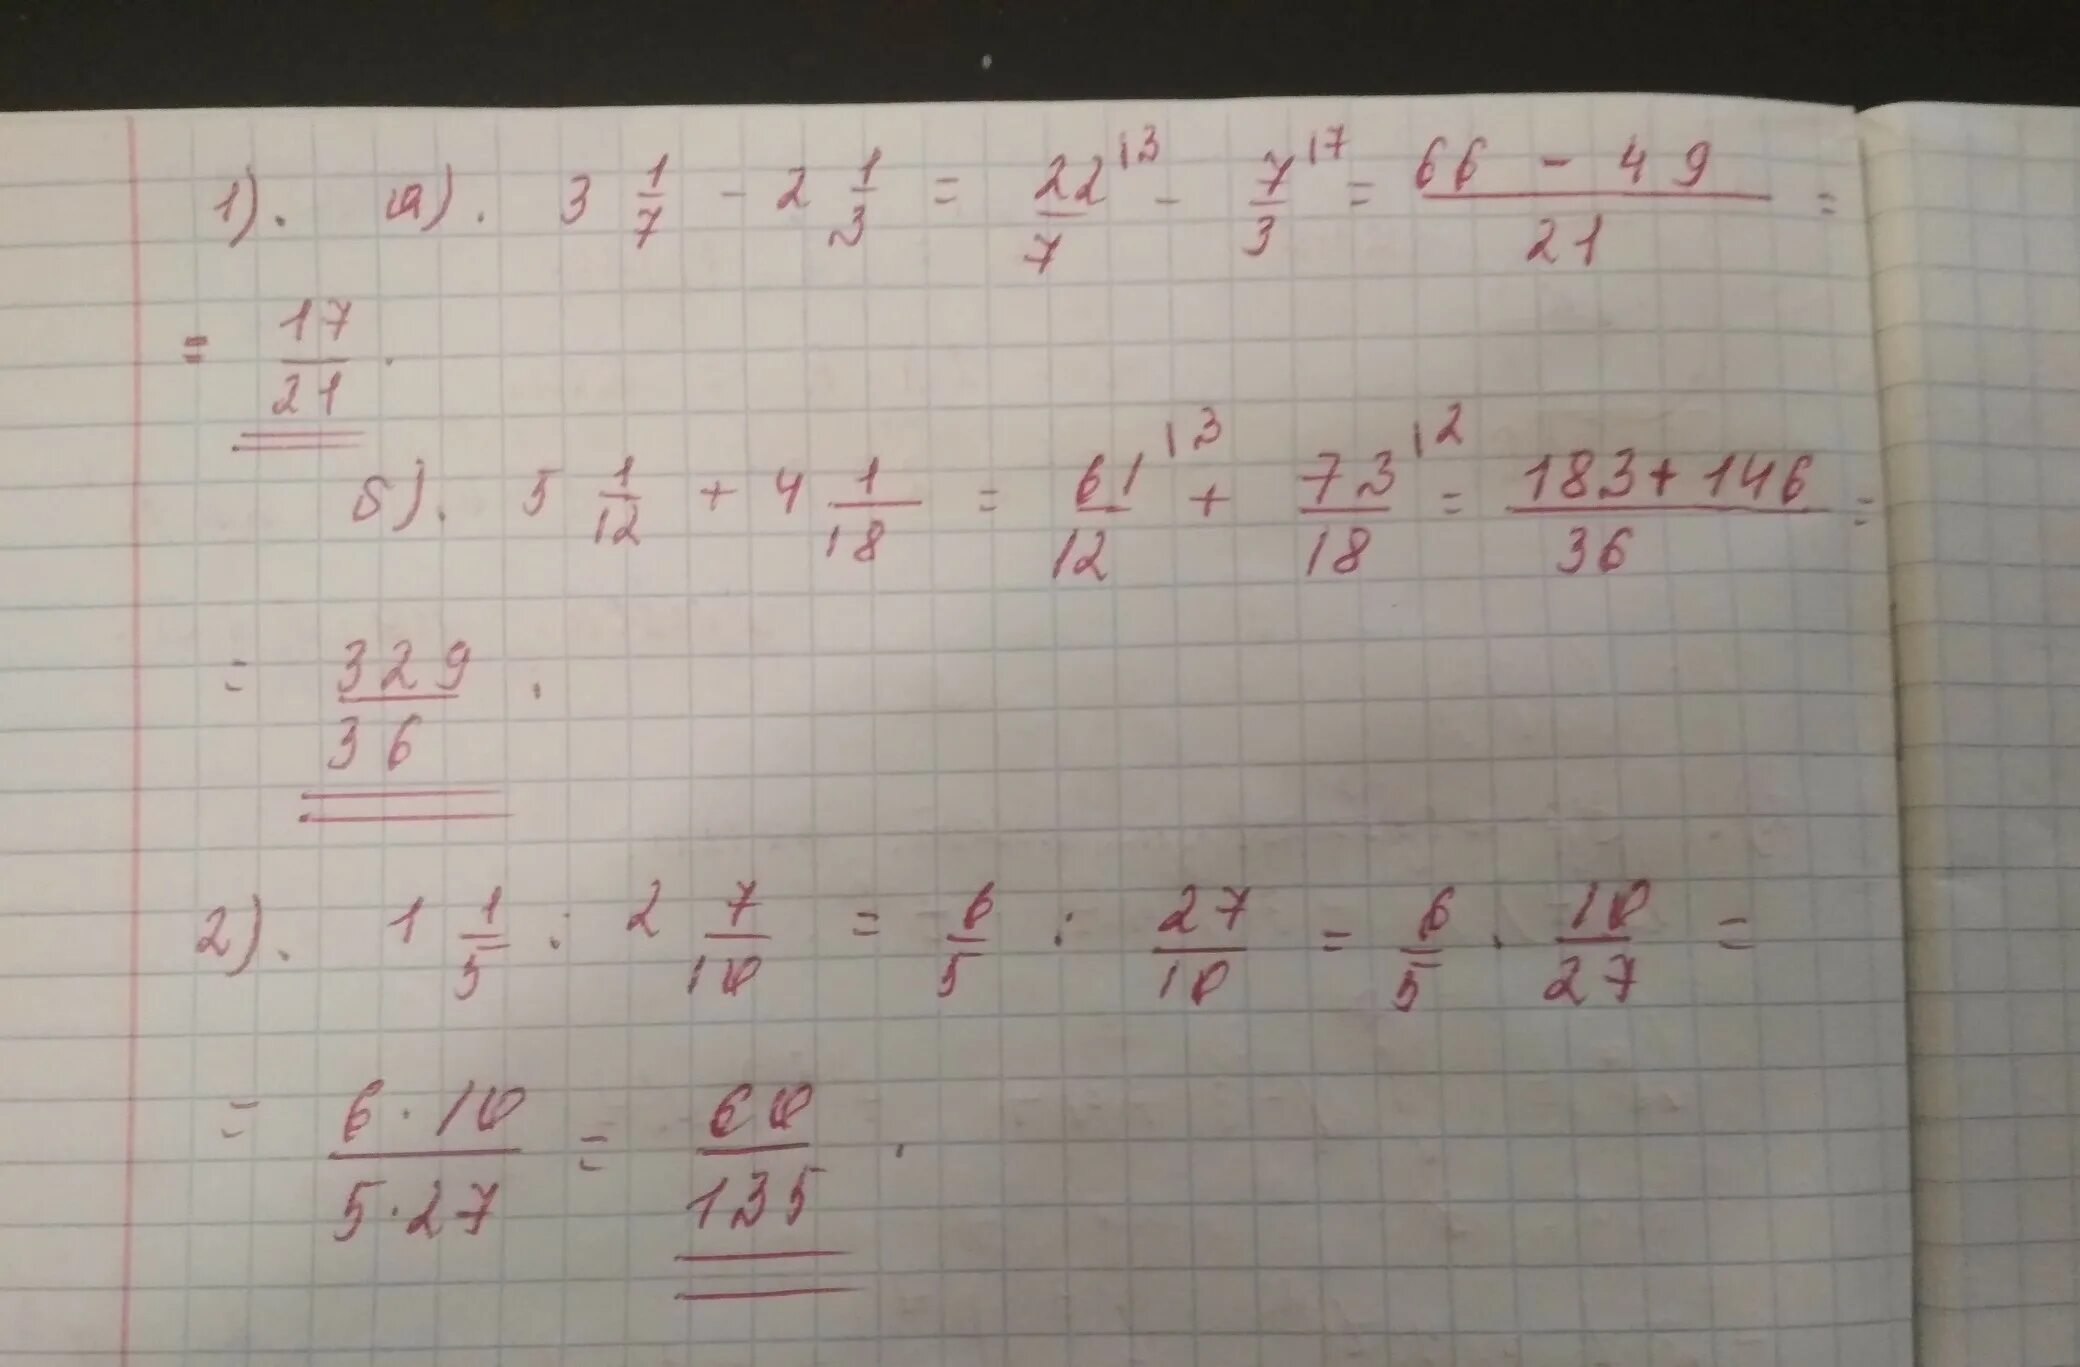 1). а). 3 1/7 - 2 1/3 = 22/7 |3 - 7/3 |7 = 66 - 49/21 =
= 17/21.
б). 5 1/12 + 4 1/18 = 61/12 |3 + 73/18 |2 = 183+146/36 =
= 329/36.
2). 1 1/5 : 2 7/10 = 6/5 : 27/10 = 6/5 · 10/27 =
= 6·10/5·27 = 60/135.